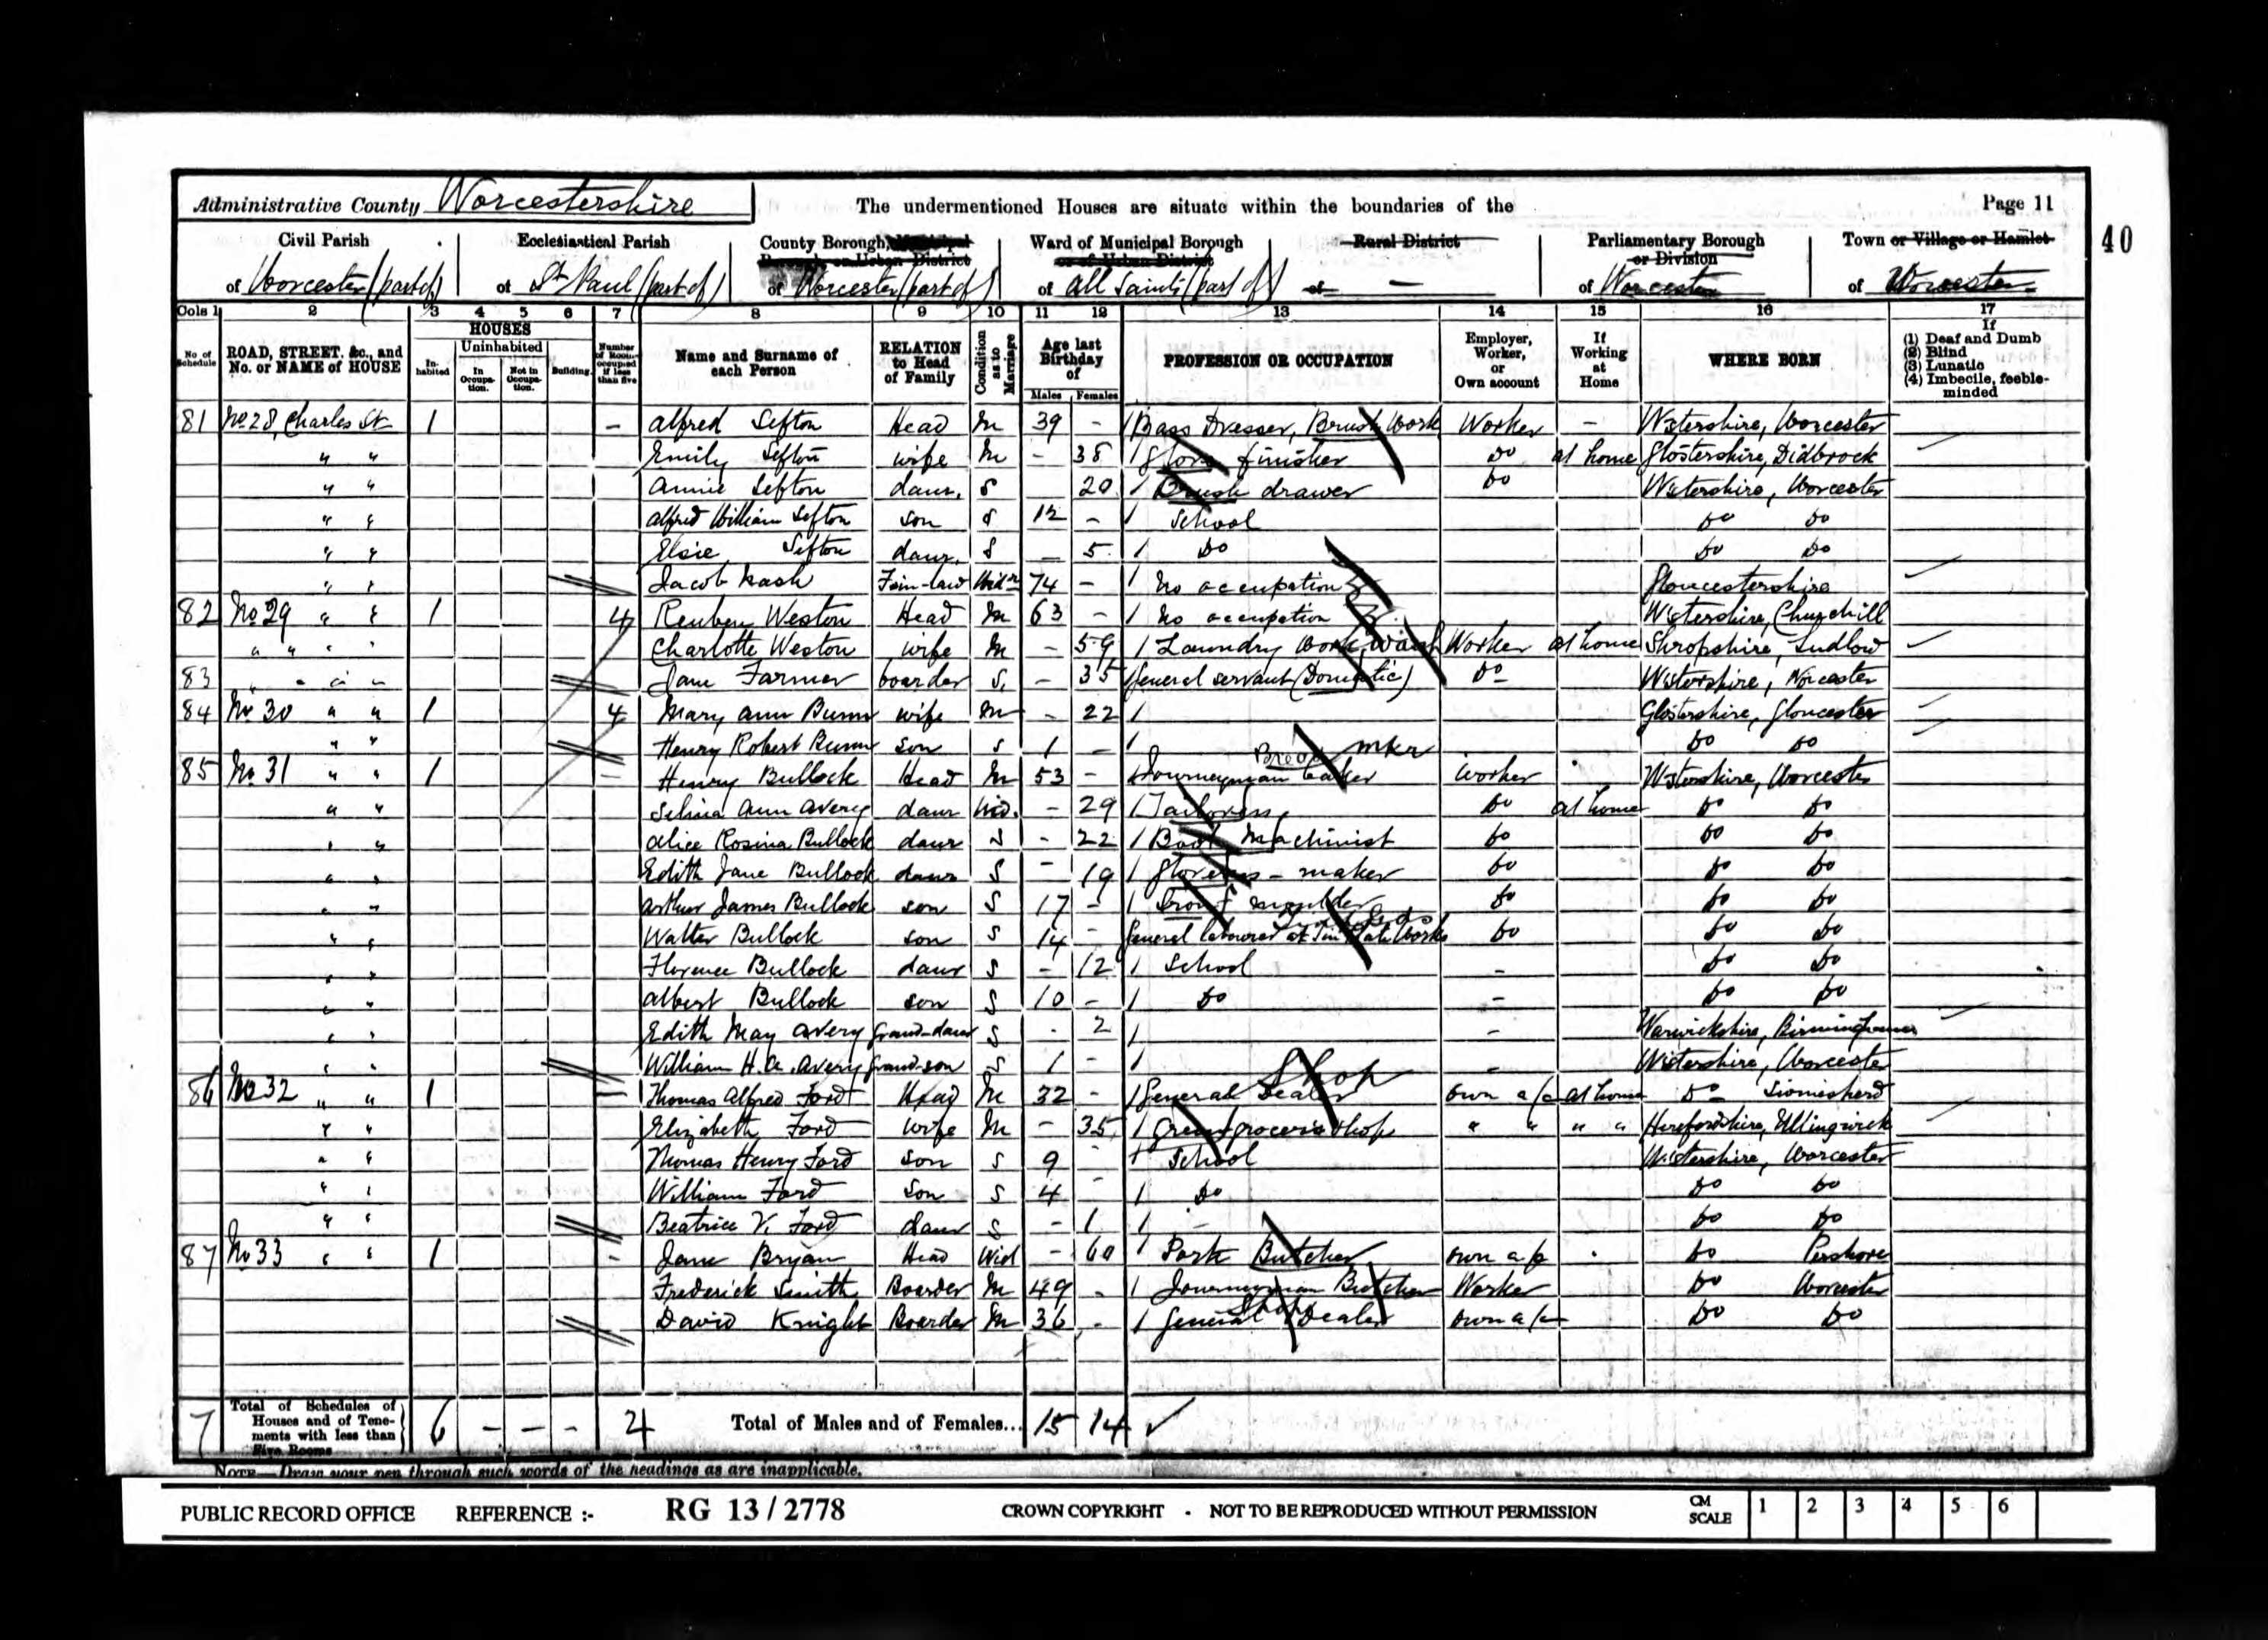 Administrative County Worcestershire The undermentioned Houses are situate within the boundaries of the Page 11
40
Civil Parish Ecclesiastical Parish County Borough, Municipal Borough or Urban District Ward of Municipal Borough or of Urban District Rural District Parliamentary Borough or Division Town or Village or Hamlet
of Worcester (part of) of St Paul (part of) of Worcester (part of) of All Saints (part of) of — of Worcester of Worcester
Cols 1 2 3 4 5 6 7 8 9 10 11 12 13 14 15 16 17
No of Schedule ROAD, STREET, &c., and No. or NAME of HOUSE HOUSES Inhabited Uninhabited In Occupation. Not in Occupation. Building. Number of Rooms occupied if less than five Name and Surname of each Person RELATION to Head of Family Condition as to Marriage Age last Birthday of Males Females PROFESSION OR OCCUPATION Employer, Worker, or Own account If Working at Home WHERE BORN If (1) Deaf and Dumb (2) Blind (3) Lunatic (4) Imbecile, feeble-minded
81 No. 28, Charles St 1 – Alfred Sefton Head M 39 – Bass Dresser, Brush Work Worker – W'stershire, Worcester
" " Emily Sefton wife M – 38 Glove finisher Do at home Glostershire, Didbrook
" " Annie Sefton daur. S 20 Brush drawer Do W'stershire, Worcester
" " Alfred William Sefton son S 12 – School Do Do
" " Elsie Sefton daur. S – 5 Do Do Do
" " Jacob Nash F-in-law Widr 74 – No occupation Gloucestershire
82 No 29 " " 1 4 Reuben Weston Head M 63 – No occupation W'stershire, Churchill
" " " " Charlotte Weston wife M – 59 Laundry Work Wash Worker at home Shropshire, Ludlow
83 " " " " Jane Farmer boarder S. – 35 General servant (Domestic) Do W'stershire, Worcester
84 No 30 " " 1 4 Mary Ann Bunn wife M – 22 Glostershire, Gloucester
" " Henry Robert Bunn son S 1 – Do Do
85 No 31 " " 1 – Henry Bullock Head M 53 – Journeyman baker Bread mkr Worker W'stershire, Worcester
" " Selina Ann Avery daur Wid. – 29 Tailoress Do at home Do Do
" " Alice Rosina Bullock daur S – 22 Boot Machinist Do Do Do
" " Edith Jane Bullock daur S – 19 Gloveress - maker Do Do Do
" " Arthur James Bullock son S 17 – Iron moulder Do Do Do
" " Walter Bullock son S 14 – General labourer at Tin Plate Works Do Do Do
" " Florence Bullock daur S – 12 School – Do Do
" " Albert Bullock son S 10 – Do – Do Do
" " Edith May Avery Grand-daur S – 2 – Warwickshire, Birmingham
" " William H. A. Avery Grand-son S 1 – – W'stershire, Worcester
86 No 32 " " 1 – Thomas Alfred Ford Head M 32 – General Dealer Shop own a/c at home Do
" " Elizabeth Ford wife M – 35 Greengrocer's shop " " " " Herefordshire, Ullingswick
" " Thomas Henry Ford son S 9 – School W'stershire, Worcester
" " William Ford Son S 4 – Do Do Do
" " Beatrice V. Ford daur S – 1 – Do Do
87 No 33 " " 1 – Jane Bryan Head Wid – 60 Pork Butcher own a/c Do Pershore
Frederick Smith Boarder M 49 – Journeyman Butcher Worker Do Worcester
David Knight Boarder M 36 – General Dealer Shop own a/c Do Do
7 Total of Schedules of Houses and of Tenements with less than Five Rooms 6 – – – 2 Total of Males and of Females... 15 14
NOTE—Draw your pen through such words of the headings as are inapplicable.
PUBLIC RECORD OFFICE REFERENCE :- RG 13 / 2778 CROWN COPYRIGHT - NOT TO BE REPRODUCED WITHOUT PERMISSION CM SCALE 1 2 3 4 5 6